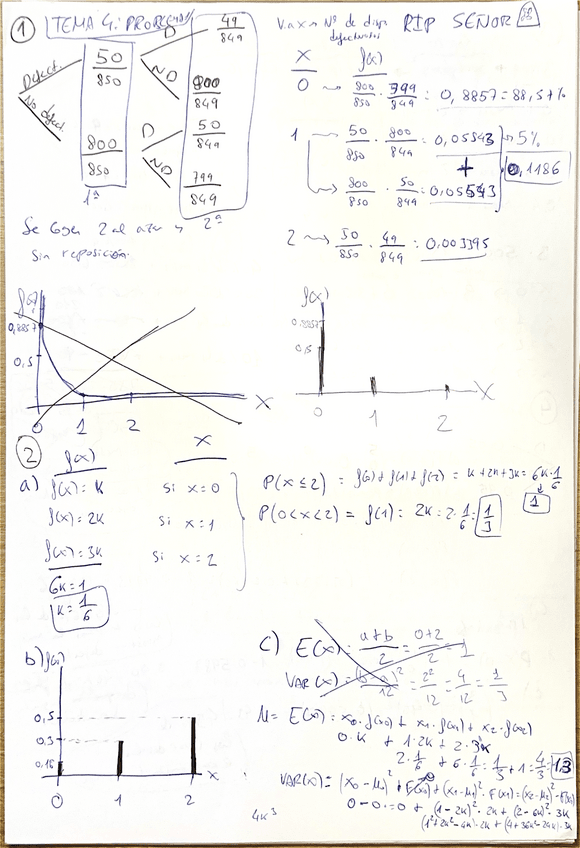 ① TEMA 4: PROBLEMAS
Defect. 50/850
No defect. 800/850
1ª
D 49/849
ND 800/849
D 50/849
ND 799/849
2ª
Se cogen 2 al azar
sin reposición.
V.a x → Nº de disp. defectuosos
RIP SEÑOR
X f(x)
0 → 800/850 · 799/849 = 0,8857 = 88,57%
1 → 50/850 · 800/849 = 0,05543 → 5%
+ 0,1186
→ 800/850 · 50/849 = 0,05543
2 → 50/850 · 49/849 = 0,003395
f(x)
0,8857
0,5
0 1 2 X
f(x)
0,8857
0,5
0 1 2 X
②
a) f(x) X
f(x) = K si x=0
f(x) = 2K si x=1
f(x) = 3K si x=2
6K=1
K=1/6
P(x≤2) = f(0)+f(1)+f(2) = K+2K+3K = 6K·1/6
1
P(0<x<2) = f(1) = 2K = 2·1/6 = 1/3
b) f(x)
0,5
0,3
0,16
0 1 2 X
c) E(x) = a+b/2 = 0+2/2 = 1
VAR(x) = (b-a)²/12 = 2²/12 = 4/12 = 1/3
μ = E(x) = x₀·f(x₀) + x₁·f(x₁) + x₂·f(x₂)
0·K + 1·2K + 2·3K
2·1/6 + 6·1/6 = 1/3 + 1 = 4/3 = 1.3
VAR(x) = (x₀-μ₀)²
0-0=0 + (1-2K)²·2K + (2-6K)²·3K
(1²+2K²-4K)·2K + (4+36K²-24K)·3K
4K³